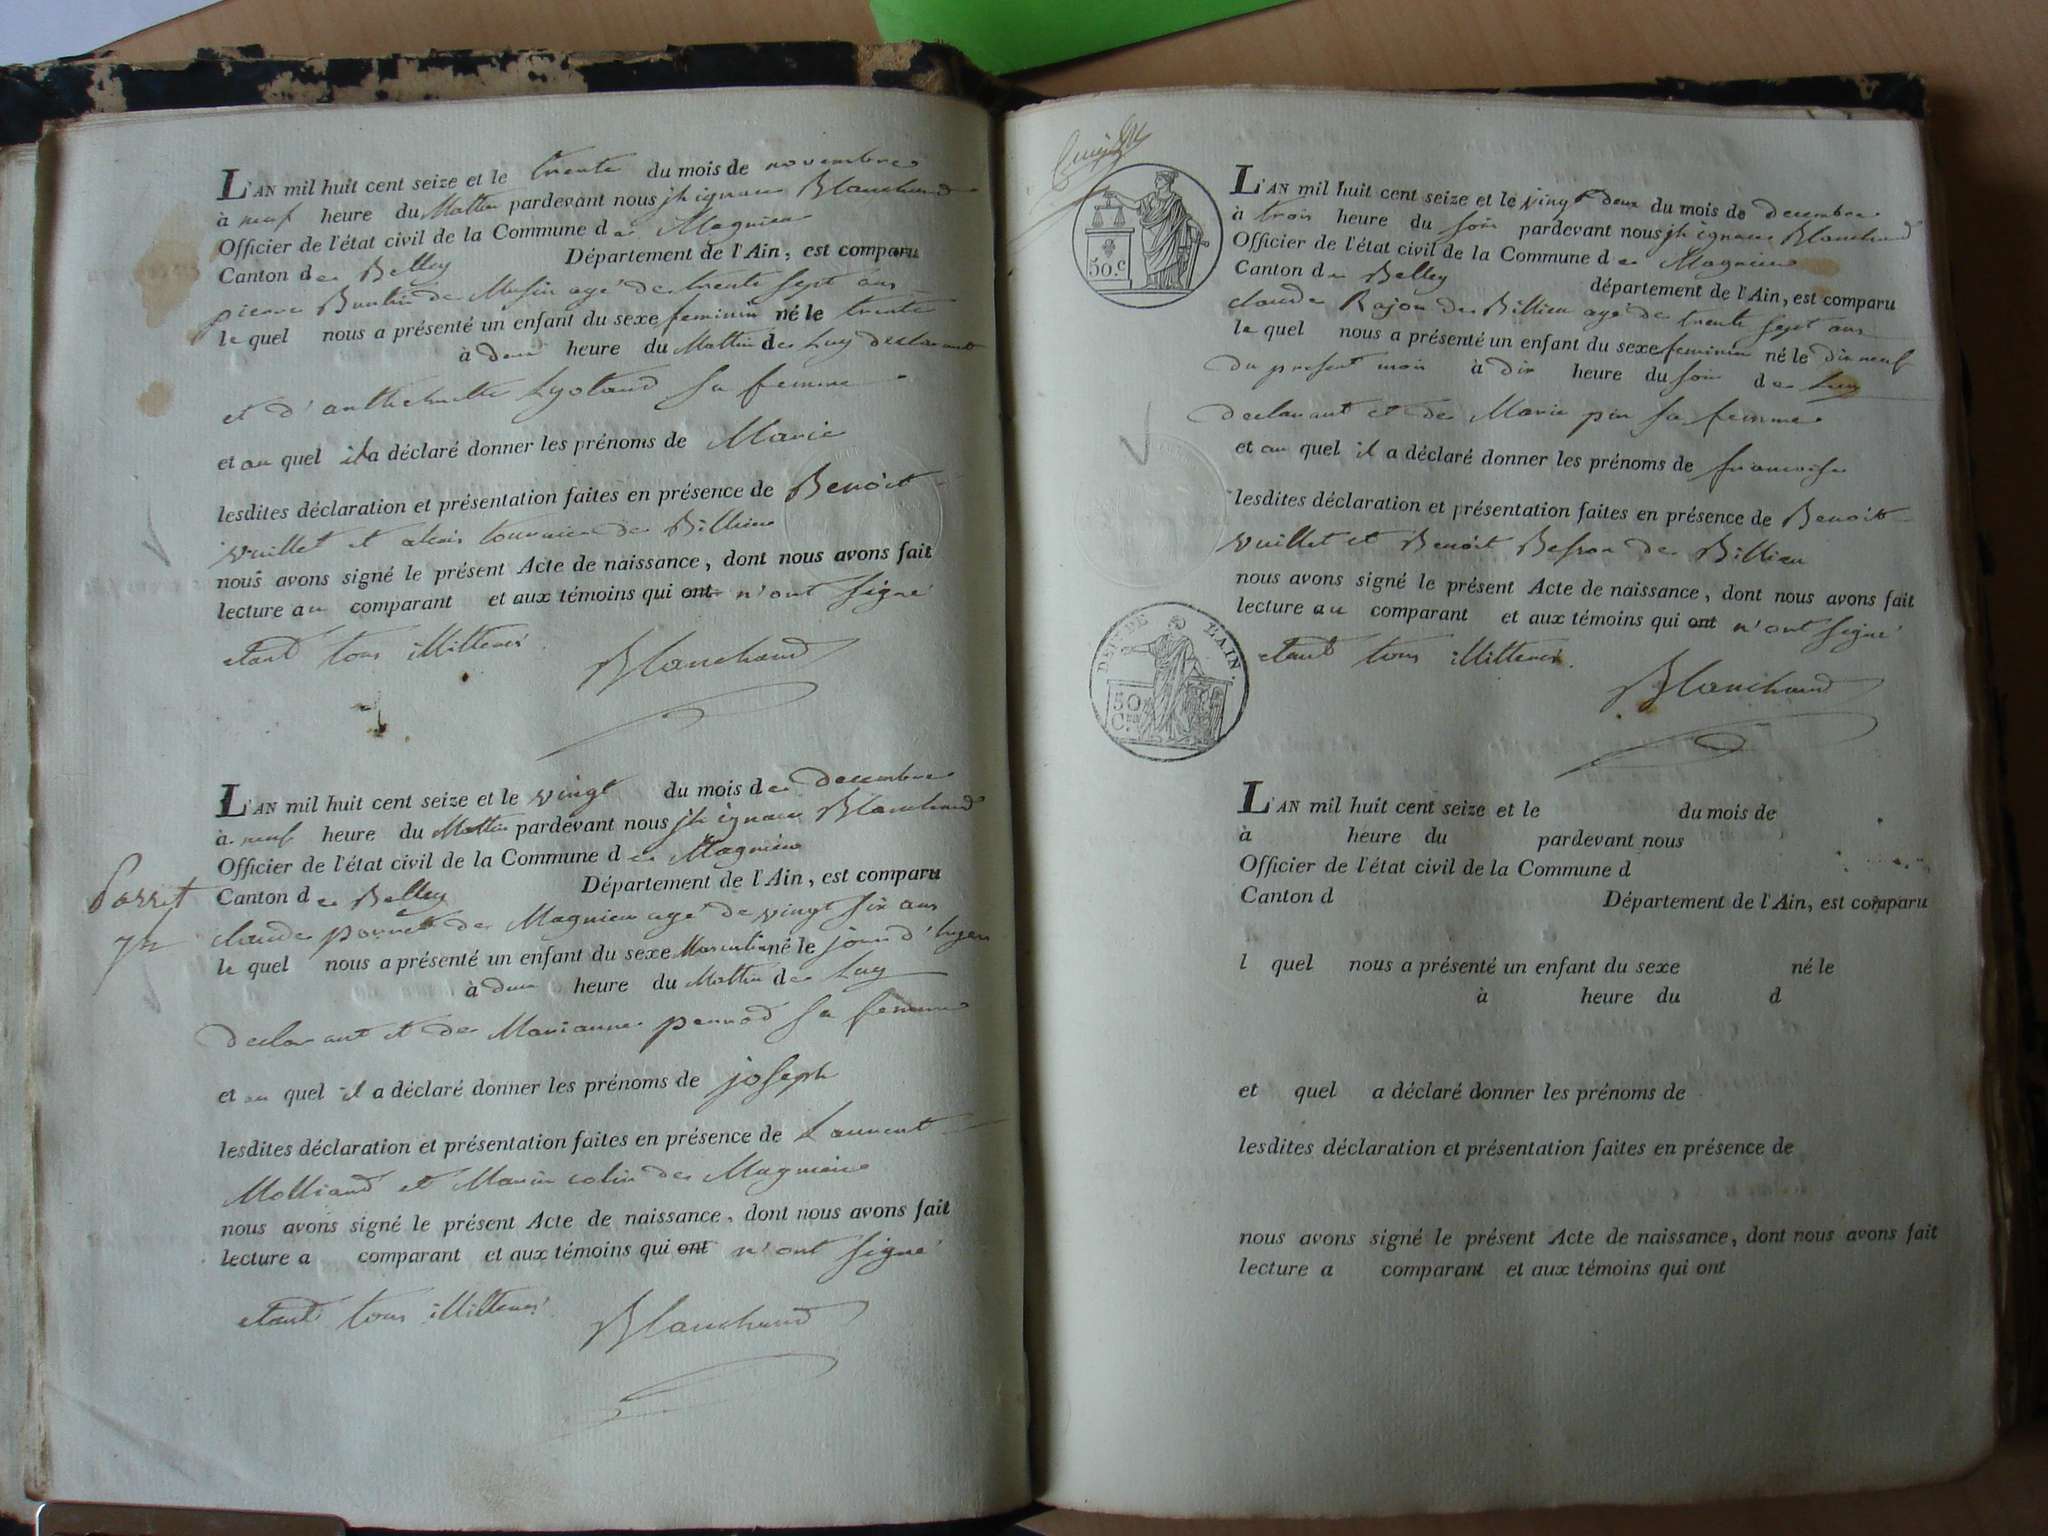 L'AN mil huit cent seize et le trente du mois de novembre
à neuf heure du Mattin pardevant nous jh ignace Blanchard
Officier de l'état civil de la Commune de Magnieu
Canton de Belley Département de l'Ain, est comparu
pierre de Musin agé de trente sept ans
le quel nous a présenté un enfant du sexe feminin né le trente
à deux heure du Mattin de Luy declarant
et d'anthelmette sa femme
et au quel il a déclaré donner les prénoms de Marie
lesdites déclaration et présentation faites en présence de Benoit
vuillet et alexis tournier de Billieu
nous avons signé le présent Acte de naissance, dont nous avons fait
lecture au comparant et aux témoins qui ont n'ont signé
etant tous illitterés
Blanchard
L'AN mil huit cent seize et le vingt du mois de decembre
à neuf heure du Mattin pardevant nous jh ignace Blanchard
Officier de l'état civil de la Commune de Magnieu
Canton de Belley Département de l'Ain, est comparu
Porret
claude porret de Magnieu agé de vingt six ans
le quel nous a présenté un enfant du sexe Masculin né le jour d'hyer
à deux heure du Mattin de Luy
declarant et de Marianne pernod sa femme
et au quel il a déclaré donner les prénoms de joseph
lesdites déclaration et présentation faites en présence de Laurent
Molliand et Marin colin de Magnieu
nous avons signé le présent Acte de naissance, dont nous avons fait
lecture a comparant et aux témoins qui ont n'ont signé
etant tous illitterés
Blanchard
50.c
L'AN mil huit cent seize et le vingt deux du mois de decembre
à trois heure du soir pardevant nous jh ignace Blanchard
Officier de l'état civil de la Commune de Magnieu
Canton de Belley département de l'Ain, est comparu
claude Rajon de Billieu agé de trente sept ans
le quel nous a présenté un enfant du sexe feminin né le dix neuf
du present mois à dix heure du soir de Luy
declarant et de Marie sa femme
et au quel il a déclaré donner les prénoms de francoise
lesdites déclaration et présentation faites en présence de Benoit
vuillet et Benoit Besson de Billieu
nous avons signé le présent Acte de naissance, dont nous avons fait
lecture au comparant et aux témoins qui ont n'ont signé
etant tous illitterés.
Blanchard
DEP. DE L'AIN.
50 C.
L'AN mil huit cent seize et le du mois de
à heure du pardevant nous
Officier de l'état civil de la Commune d
Canton d Département de l'Ain, est comparu
l quel nous a présenté un enfant du sexe né le
à heure du d
et quel a déclaré donner les prénoms de
lesdites déclaration et présentation faites en présence de
nous avons signé le présent Acte de naissance, dont nous avons fait
lecture a comparant et aux témoins qui ont